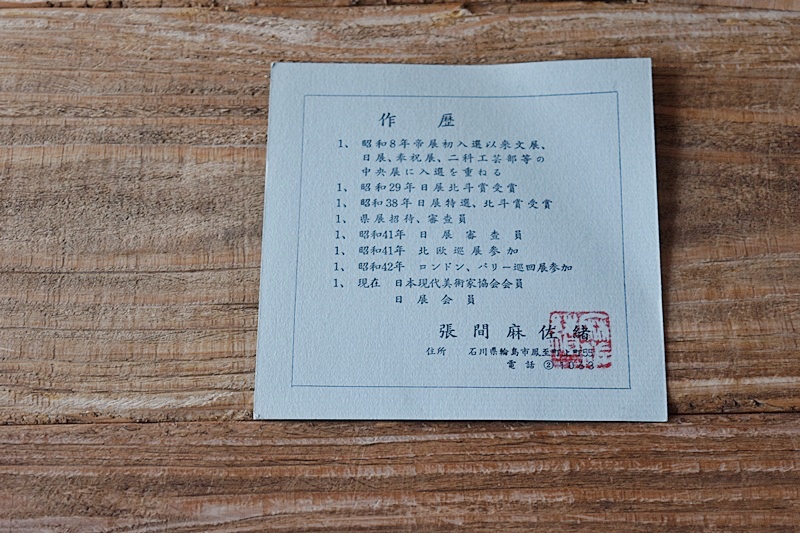 作歴
1、昭和8年帝展初入選以来文展、
日展、奉祝展、二科工芸部等の
中央展に入選を重ねる
1、昭和29年日展北斗賞受賞
1、昭和38年日展特選、北斗賞受賞
1、県展招待、審査員
1、昭和41年 日展審査員
1、昭和41年 北欧巡展参加
1、昭和42年 ロンドン、パリー巡回展参加
1、現在 日本現代美術家協会会員
日展会員
張間麻佐緒
住所 石川県輪島市鳳至町上町55
電話 ②